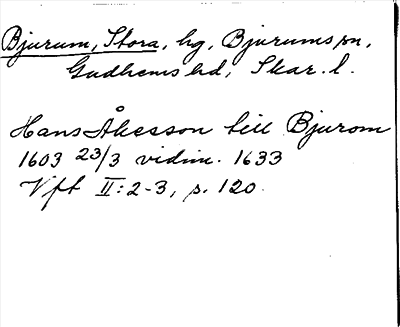 Bjurum, Stora, hg, Bjurums sn,
Gudhems hd, Skar. l.
Hans Åkesson till Bjurom
1603 23/3 vidim. 1633
Vft II:2-3, s. 120